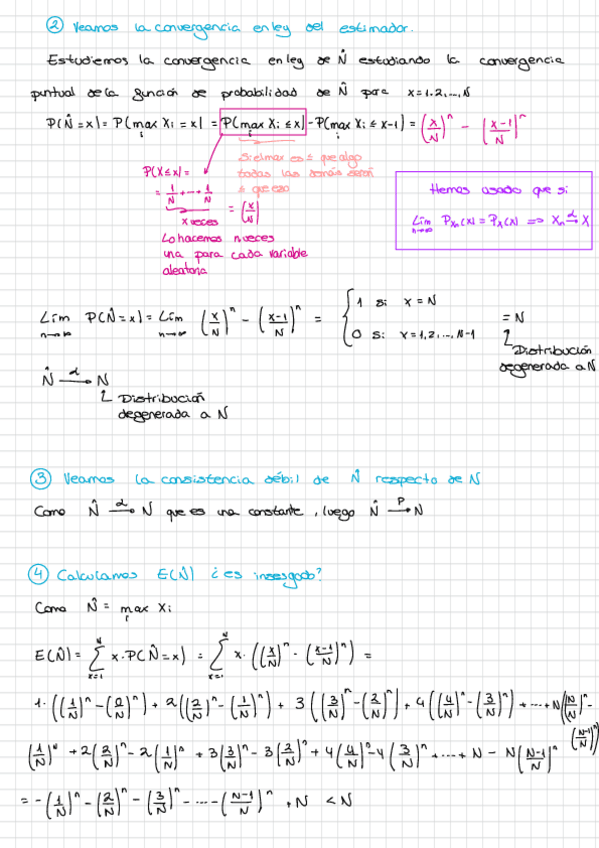 ② Veamos la convergencia en ley del estimador.
Estudiemos la convergencia en ley de N̂ estudiando la convergencia
puntual de la función de probabilidad de N̂ para x=1,2,...,N
P(N̂=x) = P(max Xi = x) = P(max Xi ≤ x) - P(max Xi ≤ x-1) = (x/N)^n - ((x-1)/N)^n
i i i
Si el max es ≤ que algo
todas las demás serán
≤ que eso
P(X≤x) =
= 1/N + ... + 1/N = (x/N)
x veces
Lo hacemos n veces
una para cada variable
aleatoria
Hemos usado que si:
Lim n→∞ P_Xn(x) = P_X(x) ⇒ Xn →^d X
Lim n→∞ P(N̂=x) = Lim n→∞ (x/N)^n - ((x-1)/N)^n = { 1 si: x=N = N
0 si: x=1,2,...,N-1
Distribución
degenerada a N
N̂ →^d N
Distribución
degenerada a N
③ Veamos la consistencia débil de N̂ respecto de N
Como N̂ →^d N que es una constante, luego N̂ →^P N
④ Calculamos E(N̂) ¿es insesgado?
Como N̂ = max Xi
i
E(N̂) = Σ_{x=1}^{N} x·P(N̂=x) = Σ_{x=1}^{N} x·((x/N)^n - ((x-1)/N)^n) =
1·((1/N)^n - (0/N)^n) + 2((2/N)^n - (1/N)^n) + 3((3/N)^n - (2/N)^n) + 4((4/N)^n - (3/N)^n) + ... + N((N/N)^n - ((N-1)/N)^n)
(1/N)^n + 2(2/N)^n - 2(1/N)^n + 3(3/N)^n - 3(2/N)^n + 4(4/N)^n - 4(3/N)^n + ... + N - N((N-1)/N)^n
= -(1/N)^n - (2/N)^n - (3/N)^n - ... - ((N-1)/N)^n + N < N